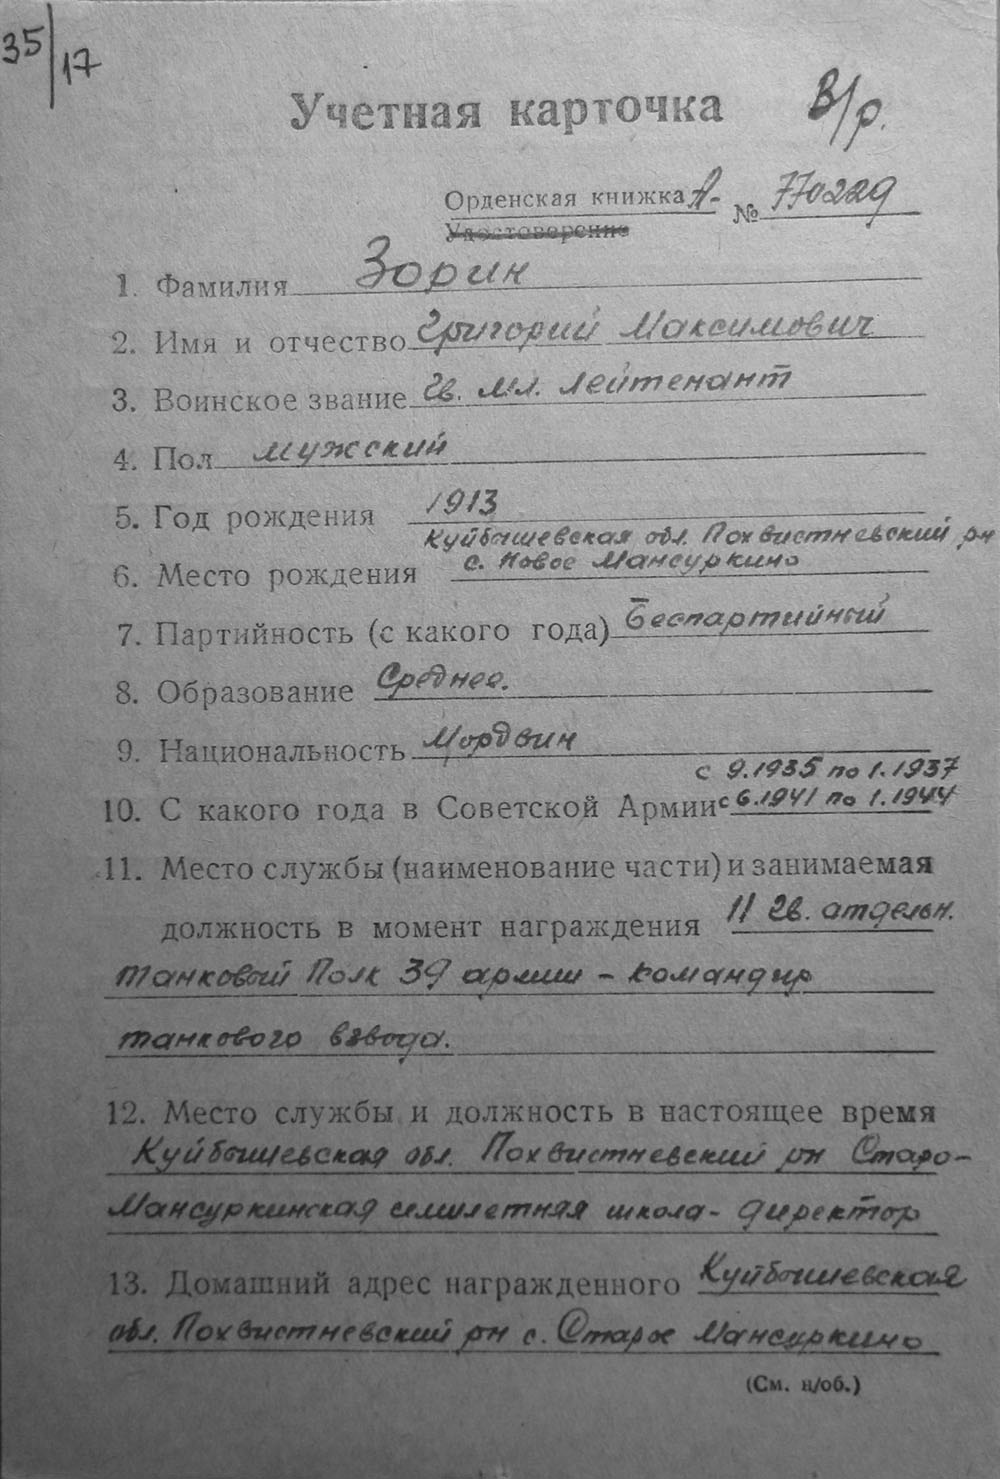 35/17
Учетная карточка
В/р.
Орденская книжка А- № 770229
Удостоверение
1. Фамилия Зорин
2. Имя и отчество Григорий Максимович
3. Воинское звание Гв. мл. лейтенант
4. Пол мужский
5. Год рождения 1913
Куйбышевская обл. Похвистневский рн
6. Место рождения с. Новое Мансуркино
7. Партийность (с какого года) Беспартийный
8. Образование Среднее.
9. Национальность Мордвин
с 9.1935 по 1.1937
10. С какого года в Советской Армии с 6.1941 по 1.1944
11. Место службы (наименование части) и занимаемая
должность в момент награждения 11 Гв. отдельн.
танковый Полк 39 армии - командир
танкового взвода.
12. Место службы и должность в настоящее время
Куйбышевская обл. Похвистневский рн Старо-
Мансуркинская семилетняя школа - директор
13. Домашний адрес награжденного Куйбышевская
обл. Похвистневский рн с. Старое Мансуркино
(См. н/об.)